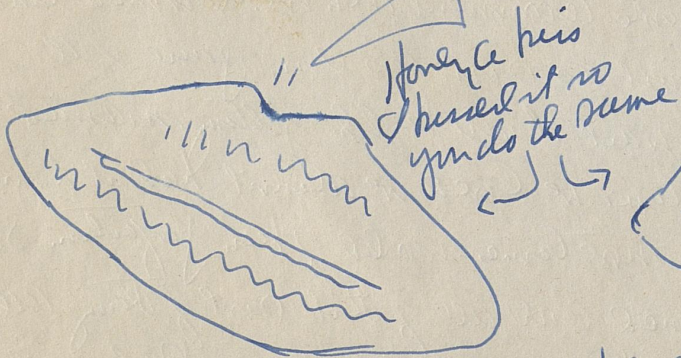 Honey a kiss
I kissed it so
you do the same